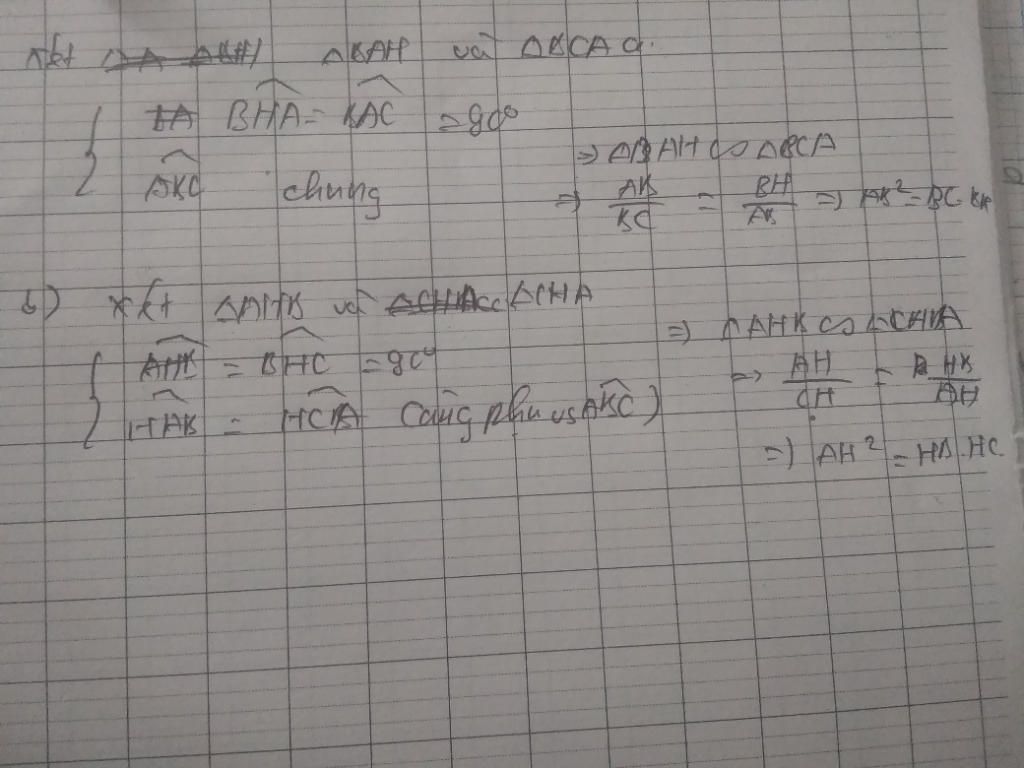 xét ΔBAH và ΔBCA có:
BHA = BAC = 90°
ABC chung
=> ΔBAH ∽ ΔBCA
=> AB/BC = BH/AB => AB² = BC. BH
b) xét ΔAHB và ΔCHA
AHB = BHC = 90°
HAB = HCA (cùng phụ vs ABC)
=> ΔAHB ∽ ΔCHA
=> AH/CH = HB/AH
=> AH² = HB.HC